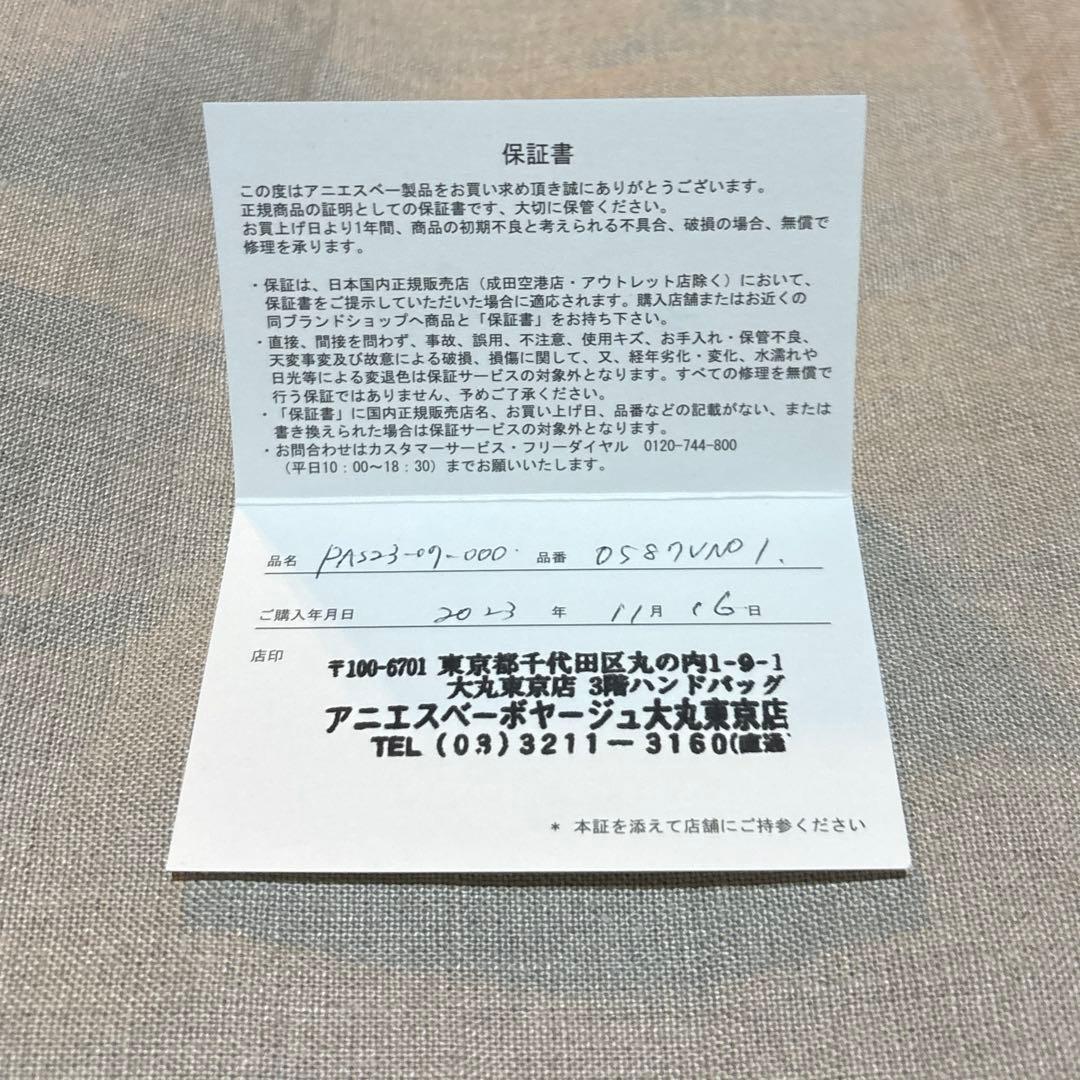 保証書
この度はアニエスベー製品をお買い求め頂き誠にありがとうございます。
正規商品の証明としての保証書です、大切に保管ください。
お買上げ日より1年間、商品の初期不良と考えられる不具合、破損の場合、無償で
修理を承ります。
・保証は、日本国内正規販売店（成田空港店・アウトレット店除く）において、
保証書をご提示していただいた場合に適応されます。購入店舗またはお近くの
同ブランドショップへ商品と「保証書」をお持ち下さい。
・直接、間接を問わず、事故、誤用、不注意、使用キズ、お手入れ・保管不良、
天変事変及び故意による破損、損傷に関して、又、経年劣化・変化、水濡れや
日光等による変退色は保証サービスの対象外となります。すべての修理を無償で
行う保証ではありません、予めご了承ください。
・「保証書」に国内正規販売店名、お買い上げ日、品番などの記載がない、または
書き換えられた場合は保証サービスの対象外となります。
・お問合わせはカスタマーサービス・フリーダイヤル 0120-744-800
（平日10：00～18：30）までお願いいたします。
品名 PAS23-09-000 品番 0587VN01.
ご購入年月日 2023 年 11月 16日
店印
〒100-6701 東京都千代田区丸の内1-9-1
大丸東京店 3階ハンドバッグ
アニエスベーボヤージュ大丸東京店
TEL (03) 3211-3160(直通
* 本証を添えて店舗にご持参ください